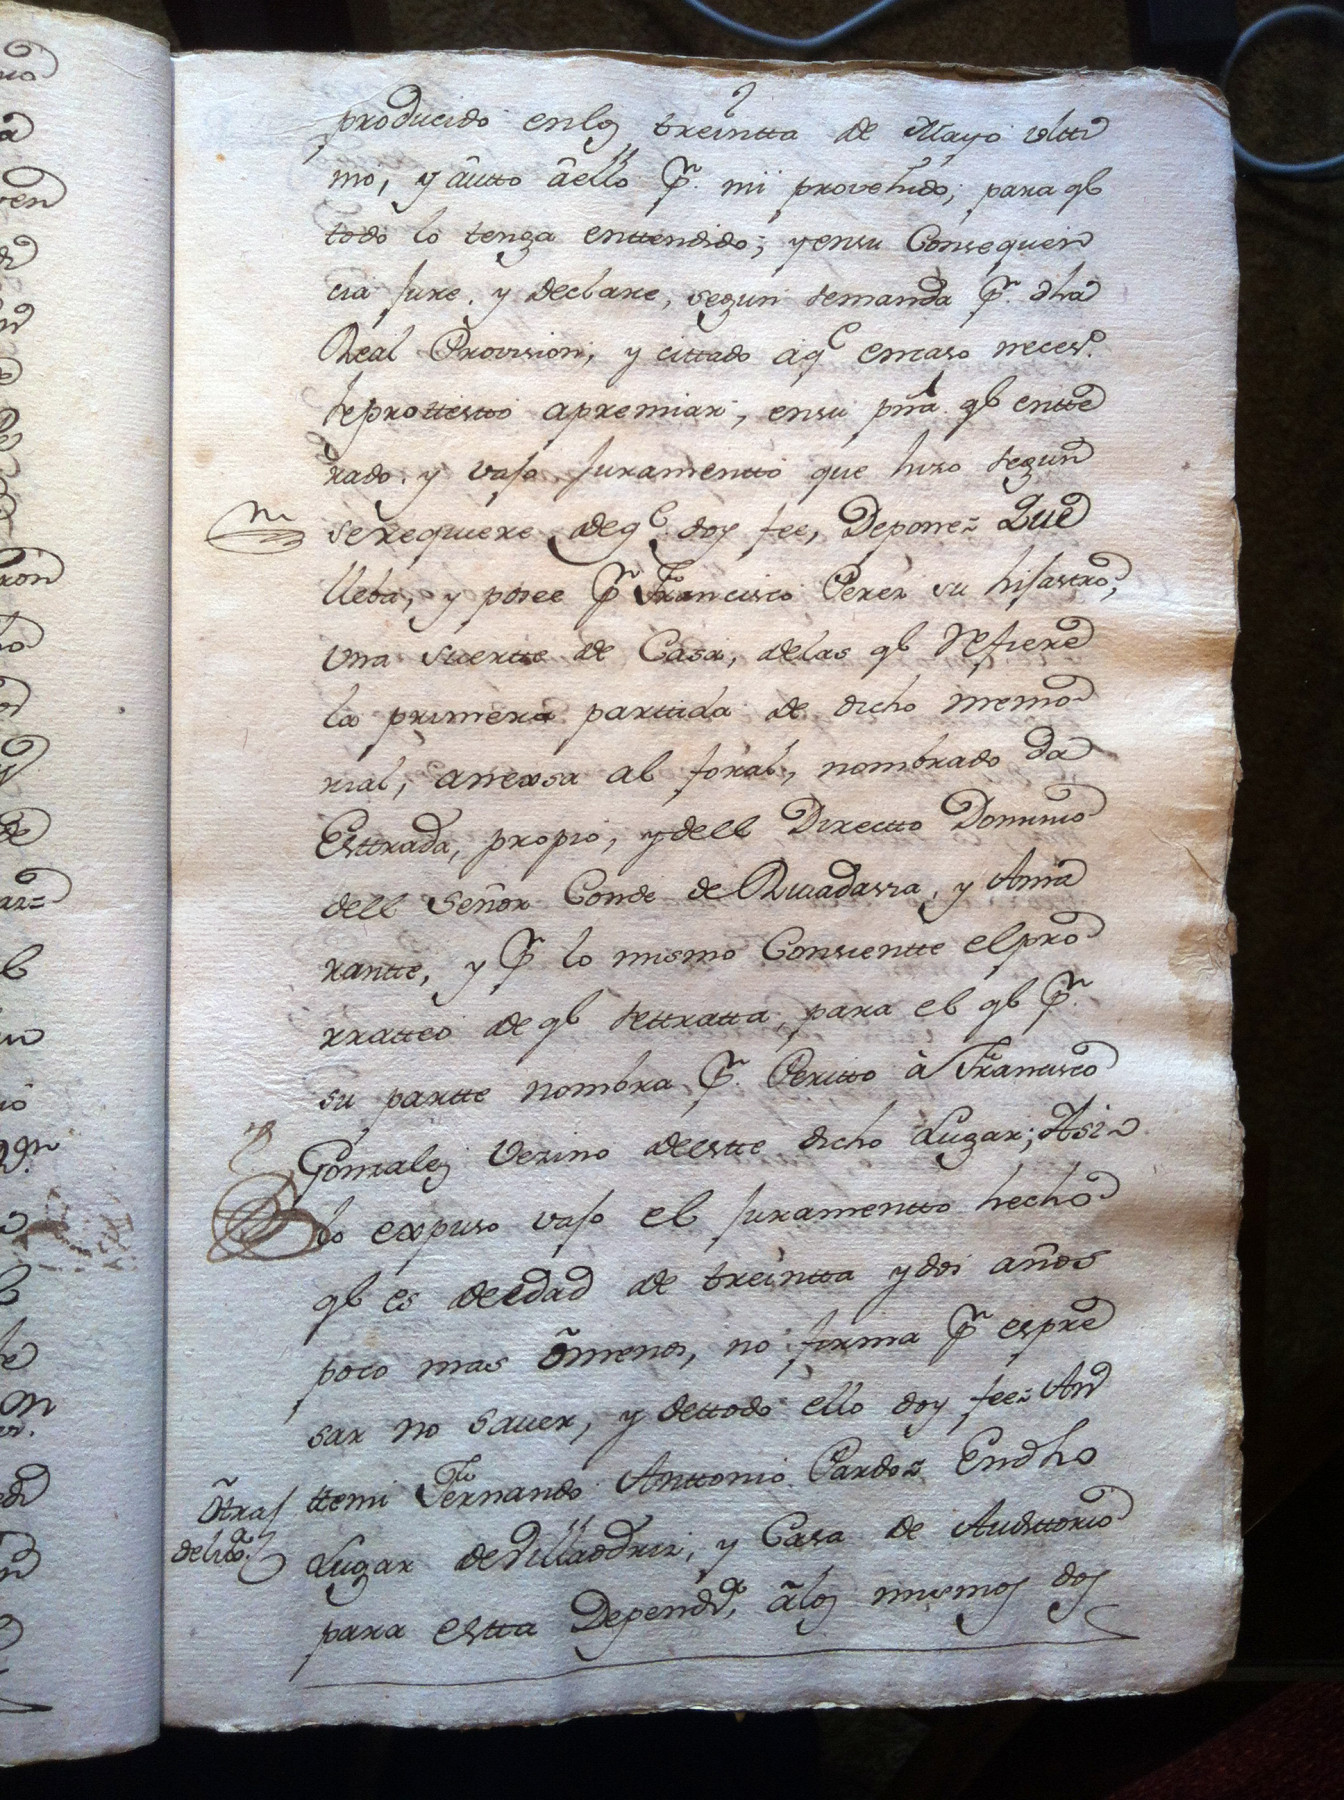 producido enlos treintta de Mayo vltti
mo, y autto aello Pr. mi provehido, para qe
todo lo tenga enttendido; y ensu Consequen
cia jure, y declare, segun semanda Pr. dha
Real Provision, y cittado aqe encaso neceso.
seprottestto apremiar, ensu pñá. qe entte
rado. y vajo juramentto que hizo segun
serequiere deqe doy fee, Depone= Que
lleba, y posee Pr Francisco Perez su hijastro,
vna suertte de Casa, delas qe Refiere
la primera parttida de dicho memo
rial, annexsa al foral, nombrado da
Esttrada, propio, y dell Directto Dominio
dell Señor Conde de Rivadavia, y Ama
rantte, y Pr lo mismo Consientte elpro
rratteo de qe settratta, para el qe Pr.
su partte nombra Pr. Peritto à Francisco
Gonzalez Vezino deestte dicho Lugar; Asi=
lo expuso vajo el juramentto hecho
qe es deedad de treintta y dos años
poco mas ōmenos, no firma Pr espre
sar no saver, y dettodo ello doy fee= An
ttemi Fernando Anttonio Pardo= Endho
Lugar deVilladriz, y Casa de Audittorio
para estta Dependa. àlos mismos dos
Òtras
delixa.